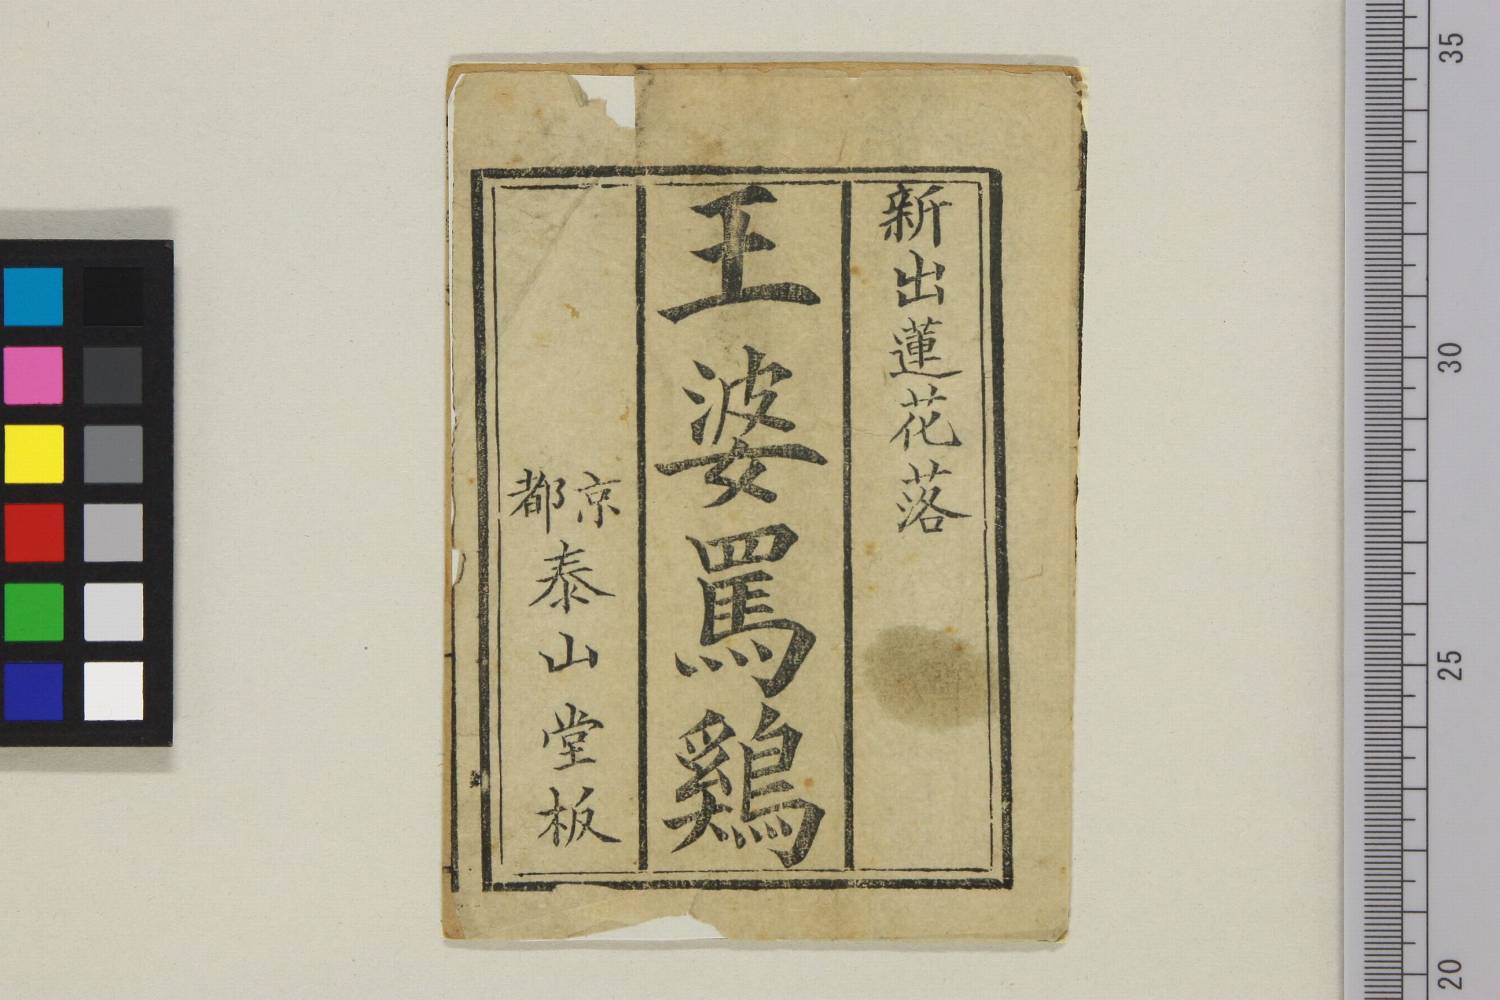 新出蓮花落
王婆罵鷄
京都泰山堂板
35
30
25
20